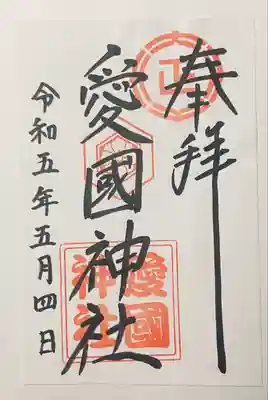 奉拝
愛國神社
令和五年五月四日
正
愛國
神社